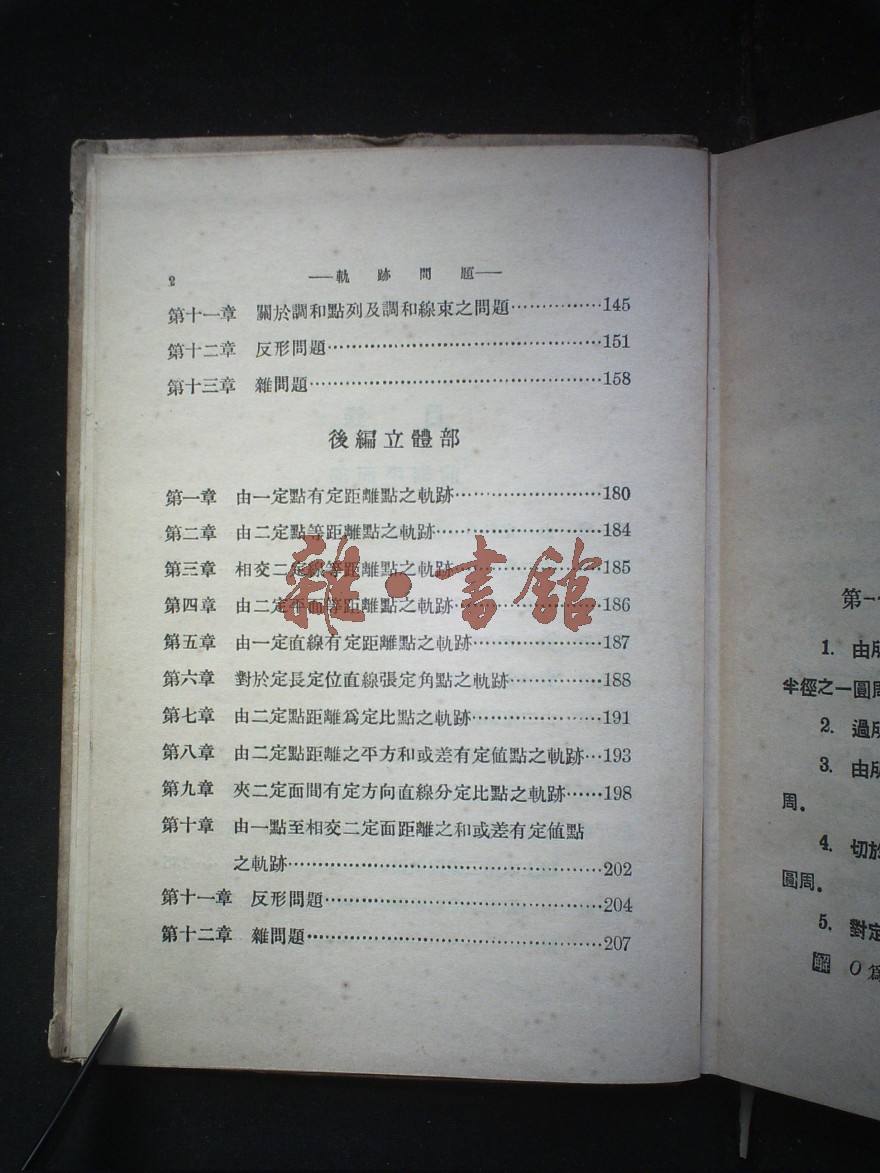 2 ──軌跡問題──
第十一章 關於調和點列及調和線束之問題……………145
第十二章 反形問題……………………………………151
第十三章 雜問題………………………………………158
後編立體部
第一章 由一定點有定距離點之軌跡…………………180
第二章 由二定點等距離點之軌跡……………………184
第三章 相交二定線等距離點之軌跡…………………185
第四章 由二定平面等距離點之軌跡…………………186
第五章 由一定直線有定距離點之軌跡………………187
第六章 對於定長定位直線張定角點之軌跡…………188
第七章 由二定點距離爲定比點之軌跡………………191
第八章 由二定點距離之平方和或差有定値點之軌跡…193
第九章 夾二定面間有定方向直線分定比點之軌跡……198
第十章 由一點至相交二定面距離之和或差有定値點
之軌跡……………………………………………202
第十一章 反形問題……………………………………204
第十二章 雜問題………………………………………207
雜·書館
第一
1. 由所
半徑之一圓周
2. 過所
3. 由所
周。
4. 切於
圓周。
5. 對定
解 O爲